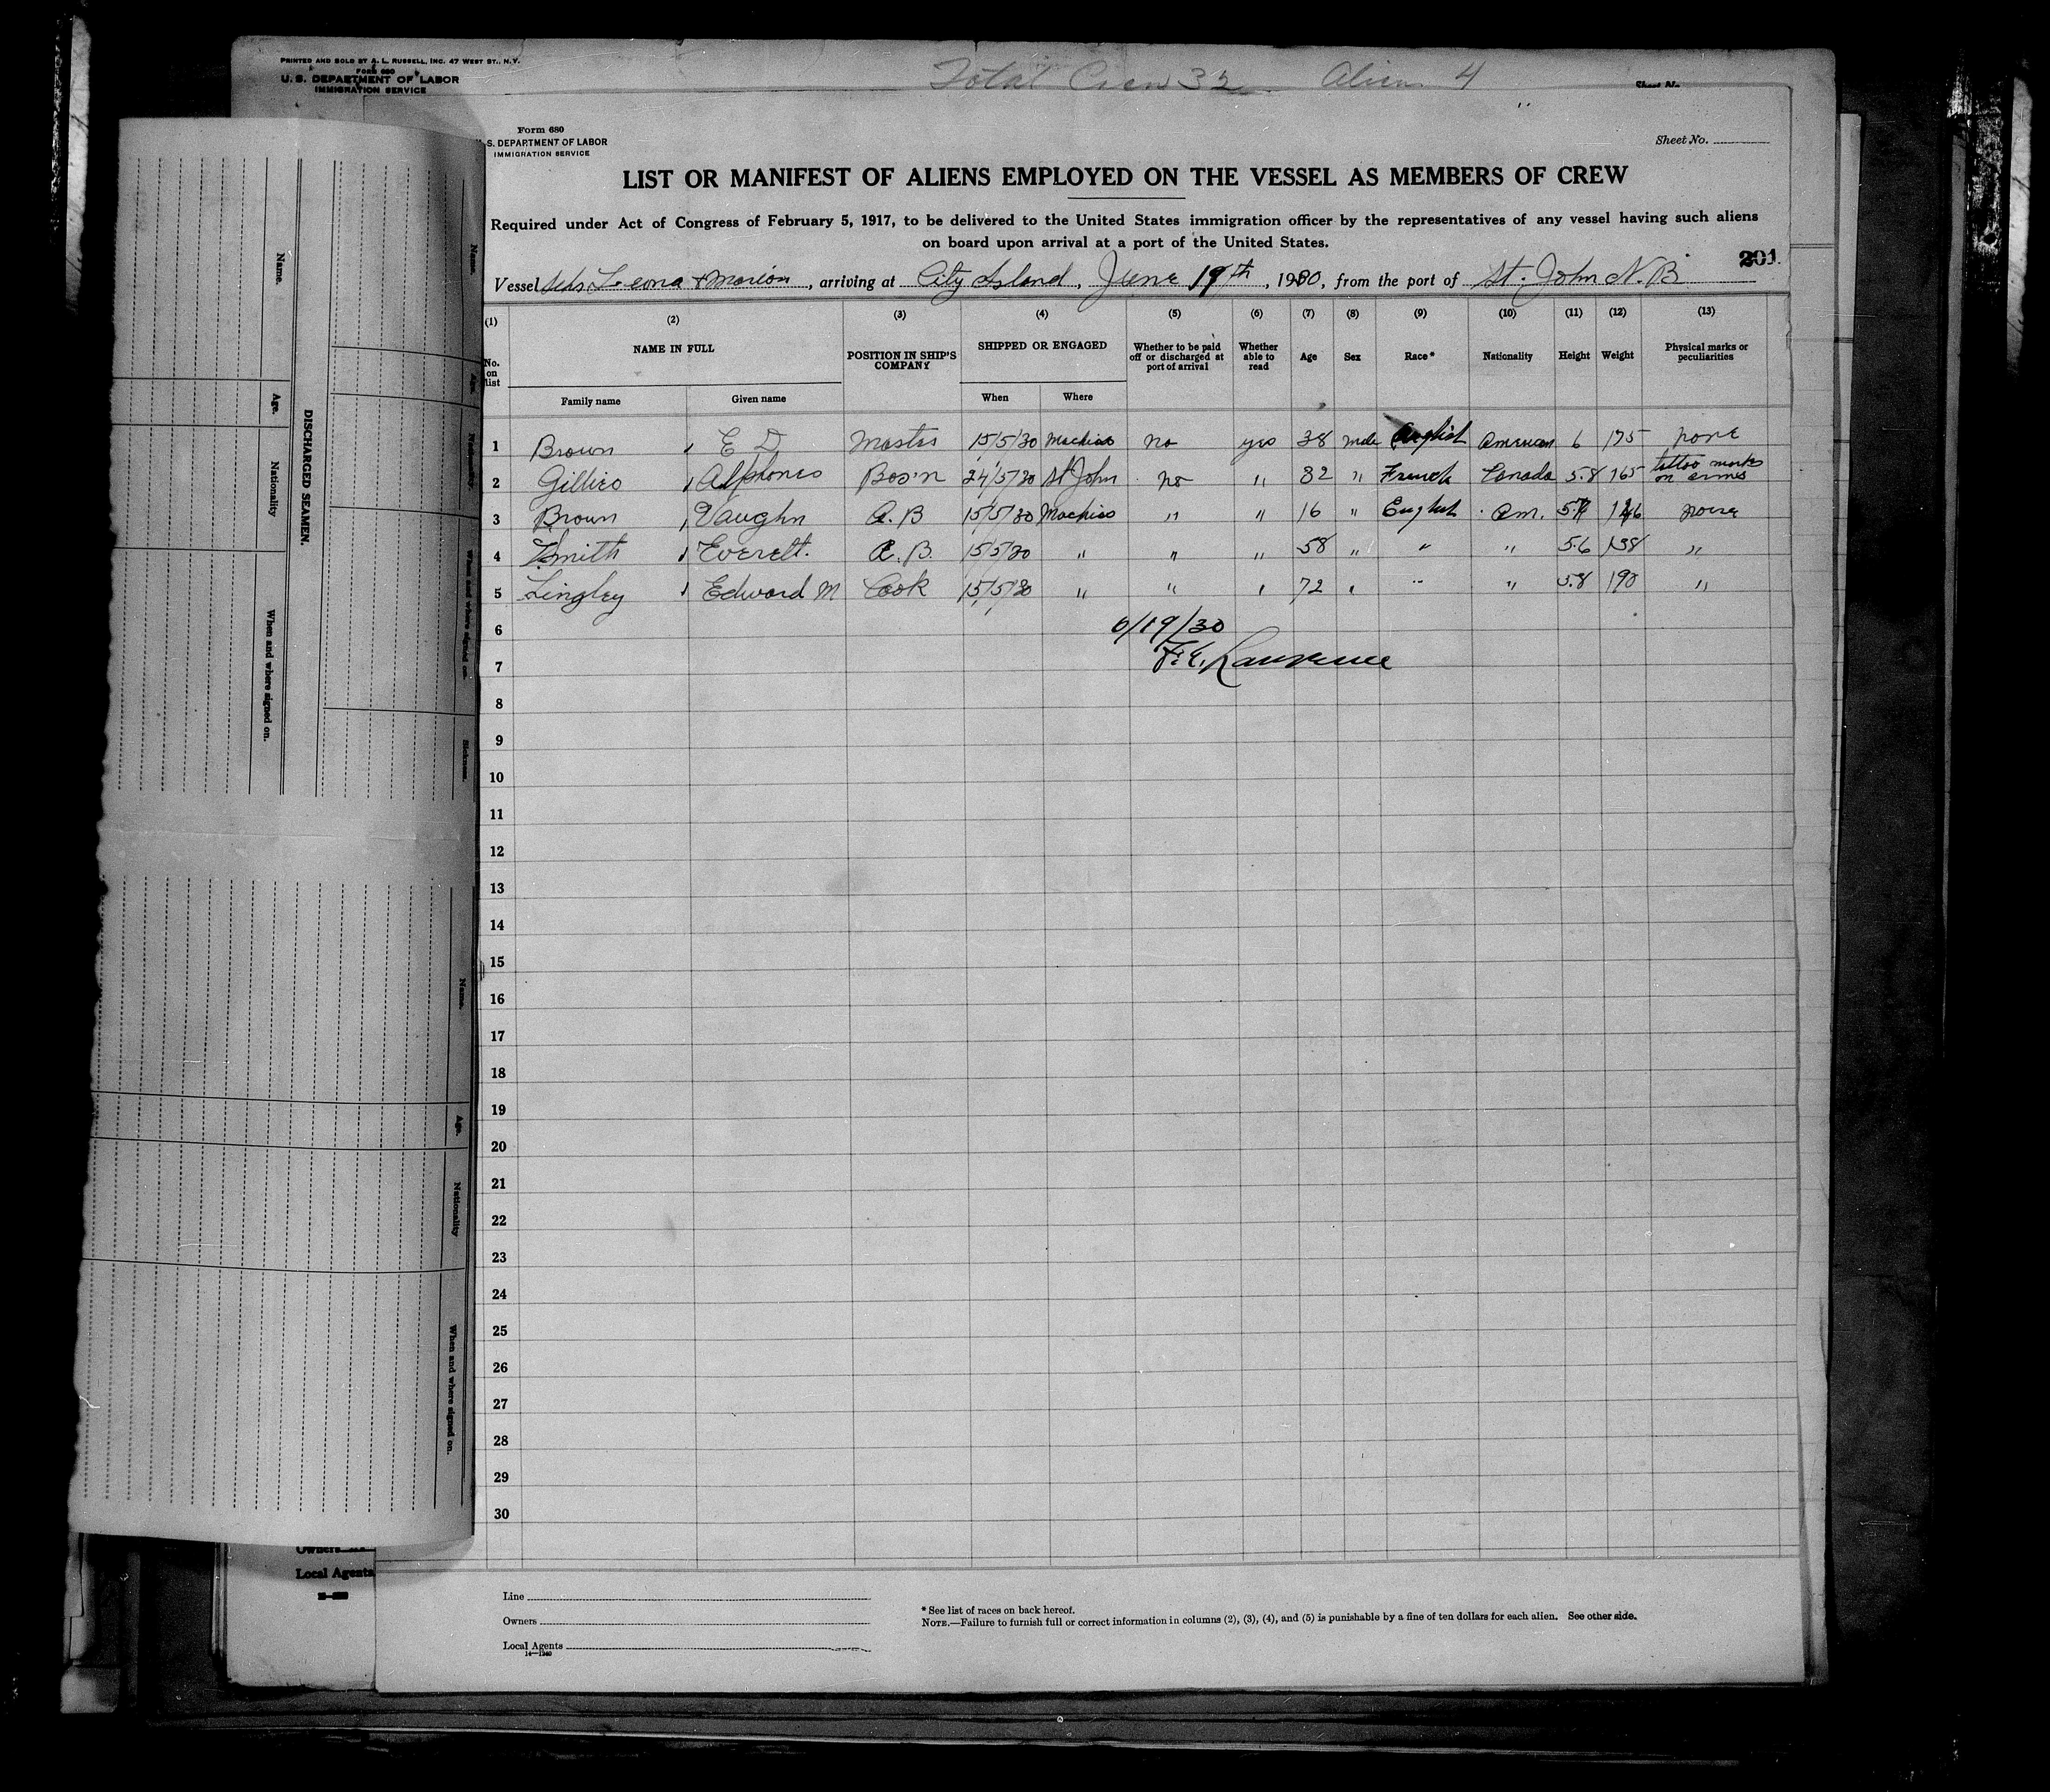 PRINTED AND SOLD BY A. L. RUSSELL, INC. 47 WEST ST., N.Y.
FORM 680
U. S. DEPARTMENT OF LABOR
IMMIGRATION SERVICE
Total Crew 32 Alien 4
Sheet No.
Form 680
U. S. DEPARTMENT OF LABOR
IMMIGRATION SERVICE
Sheet No.
LIST OR MANIFEST OF ALIENS EMPLOYED ON THE VESSEL AS MEMBERS OF CREW
Required under Act of Congress of February 5, 1917, to be delivered to the United States immigration officer by the representatives of any vessel having such aliens
on board upon arrival at a port of the United States.
201.
Vessel Schr. Leona & Marion, arriving at City Island, June 19th, 1930, from the port of St. John N.B
(1) (2) (3) (4) (5) (6) (7) (8) (9) (10) (11) (12) (13)
No. on list NAME IN FULL POSITION IN SHIP'S COMPANY SHIPPED OR ENGAGED Whether to be paid off or discharged at port of arrival Whether able to read Age Sex Race* Nationality Height Weight Physical marks or peculiarities
Family name Given name When Where
1 Brown E D Master 15/5/30 Machias no yes 38 male English American 6 175 none
2 Gillies Alphones Bos'n 24/5/30 St John no " 32 " French Canada 5.8 165 tattoo marks on arms
3 Brown Vaughn A.B 15/5/30 Machias " " 16 " English Am. 146 none
4 Smith Everett. A.B. 15/5/30 " " " 58 " " " 5.6 138 "
5 Lingley Edward M Cook 15/5/30 " " " 72 " " " 5.8 190 "
6
6/19/30
7
F.E. Lawrence
8
9
10
11
12
13
14
15
16
17
18
19
20
21
22
23
24
25
26
27
28
29
30
Line
Owners
Local Agents
14—1240
* See list of races on back hereof.
NOTE.—Failure to furnish full or correct information in columns (2), (3), (4), and (5) is punishable by a fine of ten dollars for each alien. See other side.
Owners
Local Agents
Name.
Age.
Nationality
When and where signed on.
DISCHARGED SEAMEN.
Name.
Age.
Nationality
When and where signed on.
Sickness.
Name.
Age.
Nationality
When and where signed on.